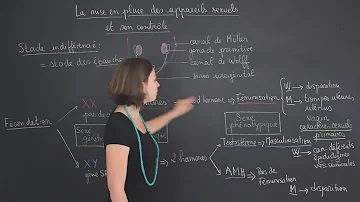 La mise en place des appareils sexuels
et son contrôle
Stade indifférencié :
= stade des ébauches
canal de Müller
gonade primitive
canal de Wolff
sinus urogénital
Fécondation
XX
pas de
Sexe
géné
XY
gène S
2 hormones
hormone ⇒ Féminisation
Sexe
phénotypique
W → disparition
M → trompes utérines
utérus
Vagin
caractères sexuels
primaires
Testostérone → Masculinisation
W → can. déférents
épididymes
vés. séminales
AMH → Pas de
féminisation
M → disparition